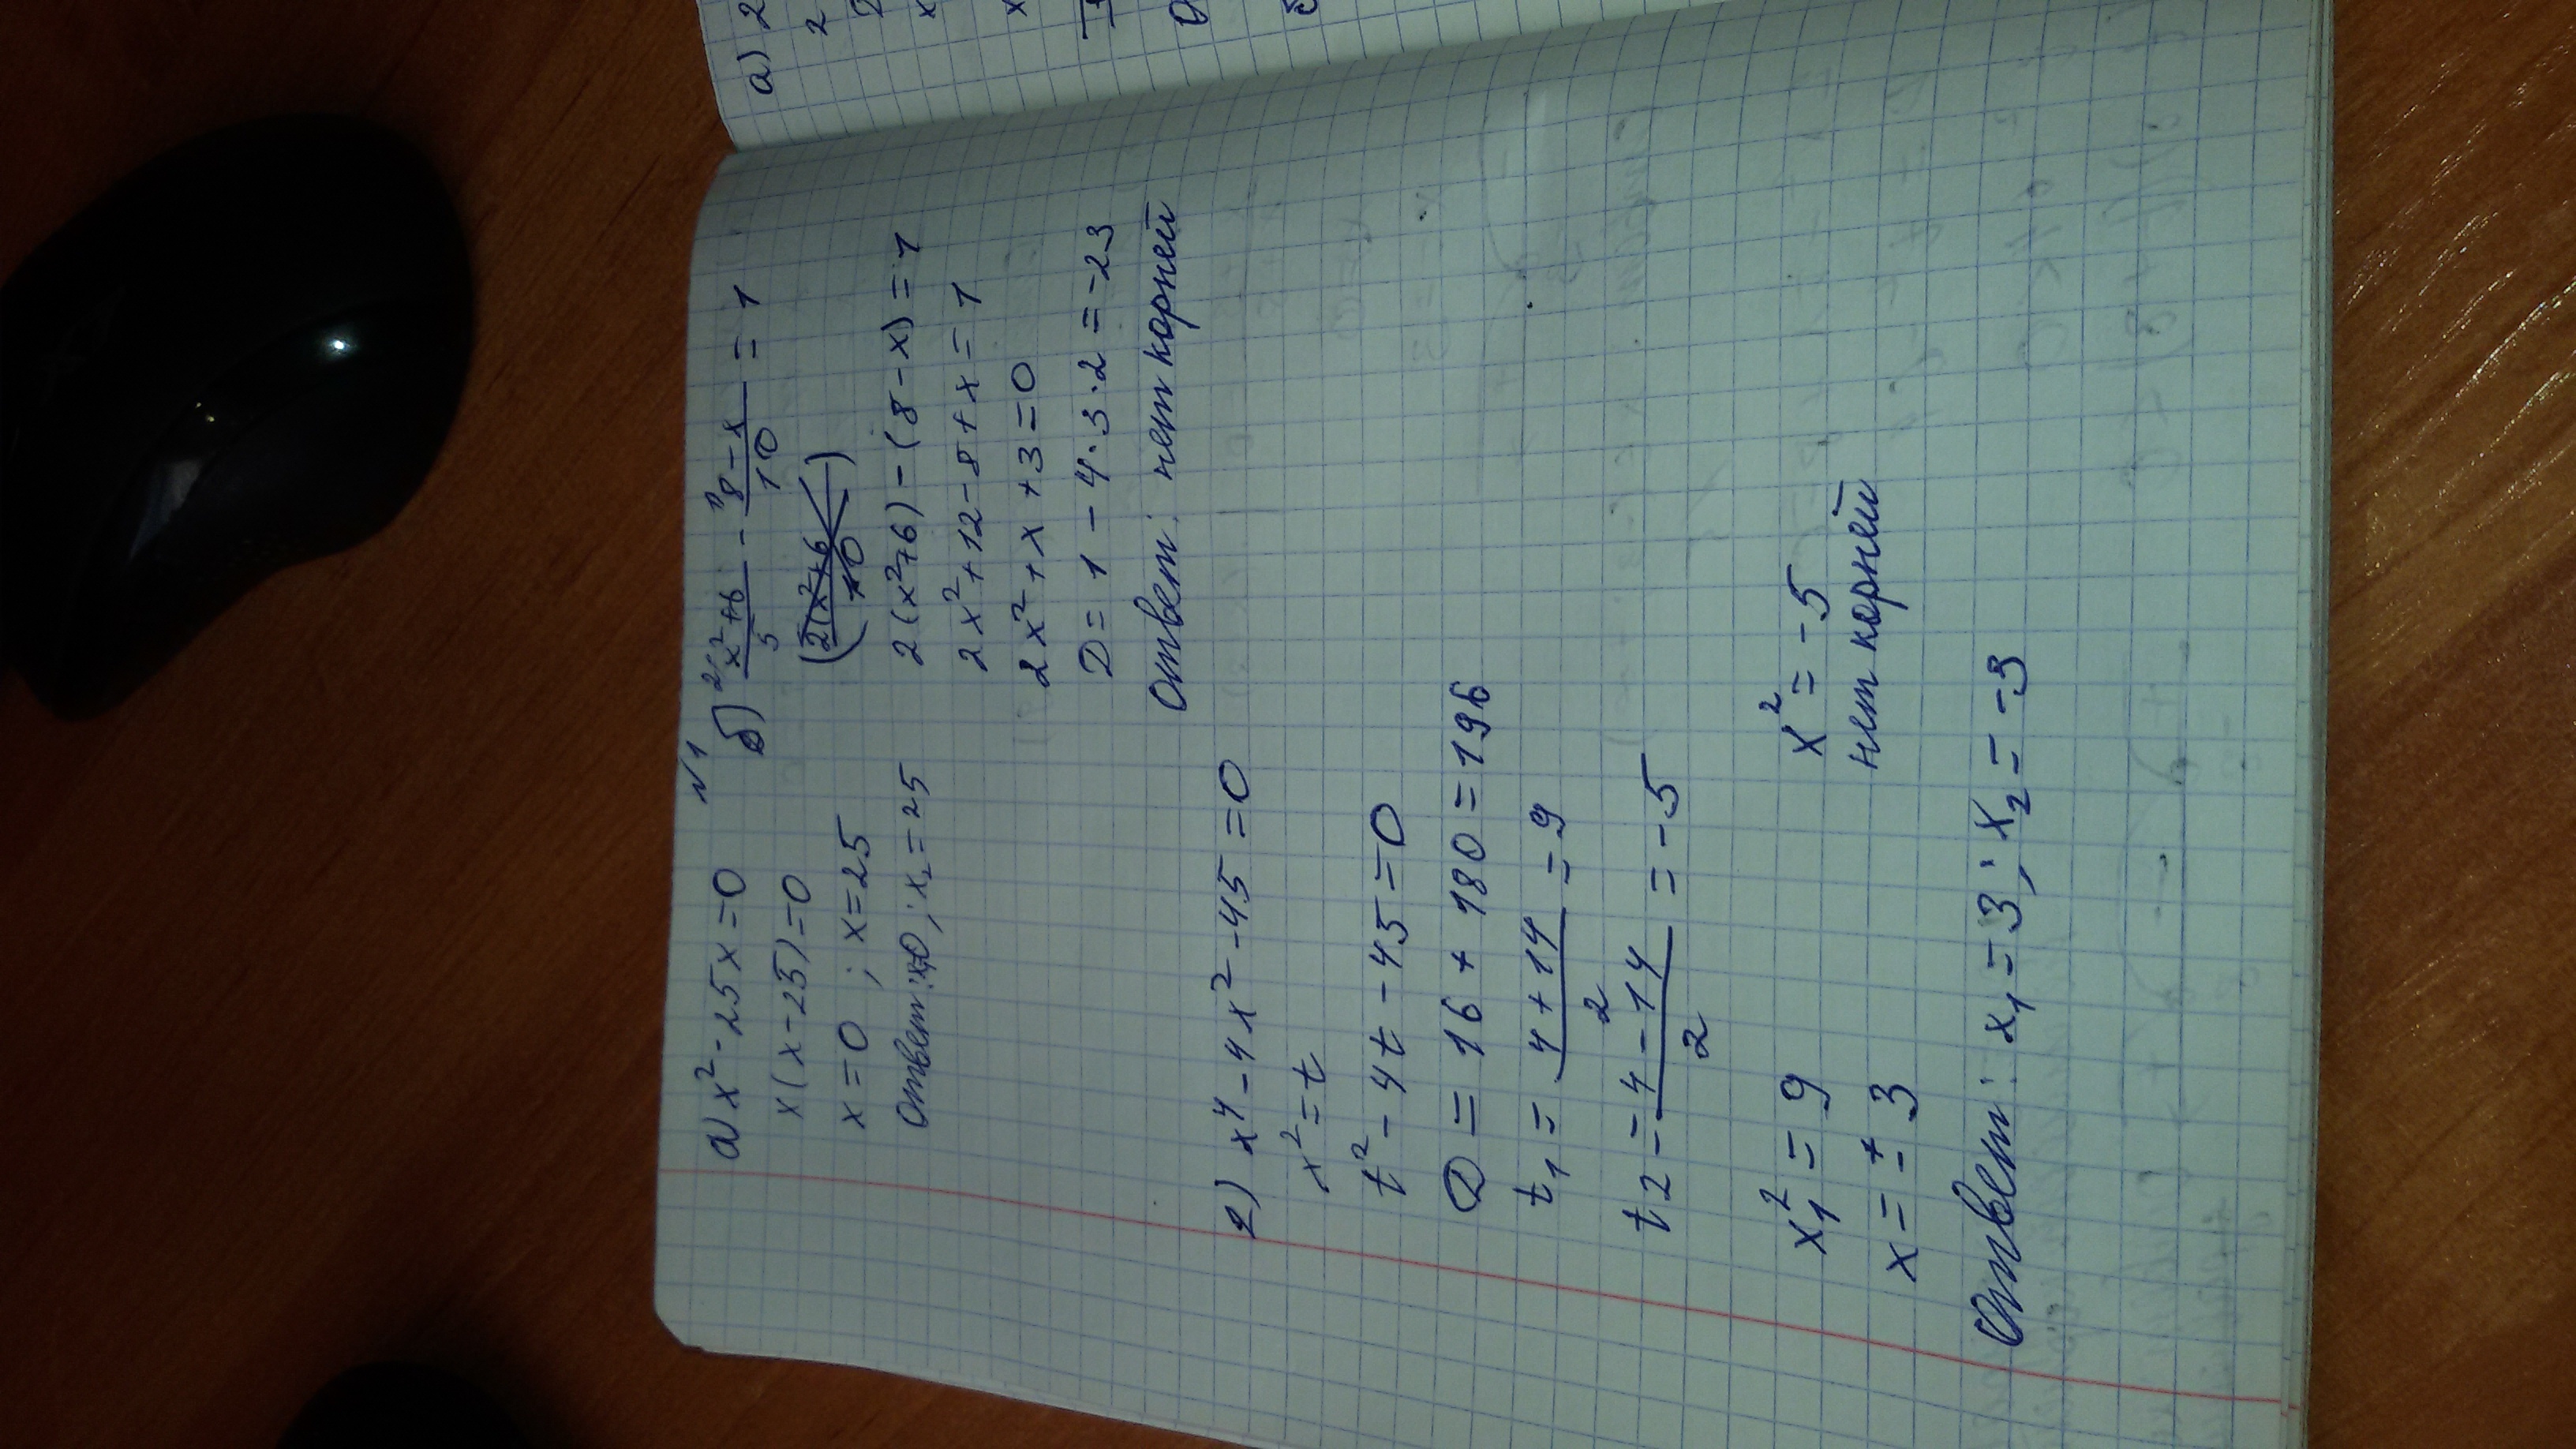 №1
а) x² - 25x = 0
x(x - 25) = 0
x = 0 ; x = 25
Ответ: x₁0; x₂ = 25
б) ²⁾(x² + 6)/5 - ¹⁾(8 - x)/10 = 1
2(x² + 6) - (8 - x) = 1
2x² + 12 - 8 + x = 1
2x² + x + 3 = 0
D = 1 - 4 · 3 · 2 = -23
Ответ: нет корней
2) x⁴ - 4x² - 45 = 0
x² = t
t² - 4t - 45 = 0
D = 16 + 180 = 196
t₁ = (4 + 14)/2 = 9
t2 = (4 - 14)/2 = -5
x₁² = 9
x² = -5
x = ± 3
нет корней
Ответ: x₁ = 3; x₂ = -3
а) 2